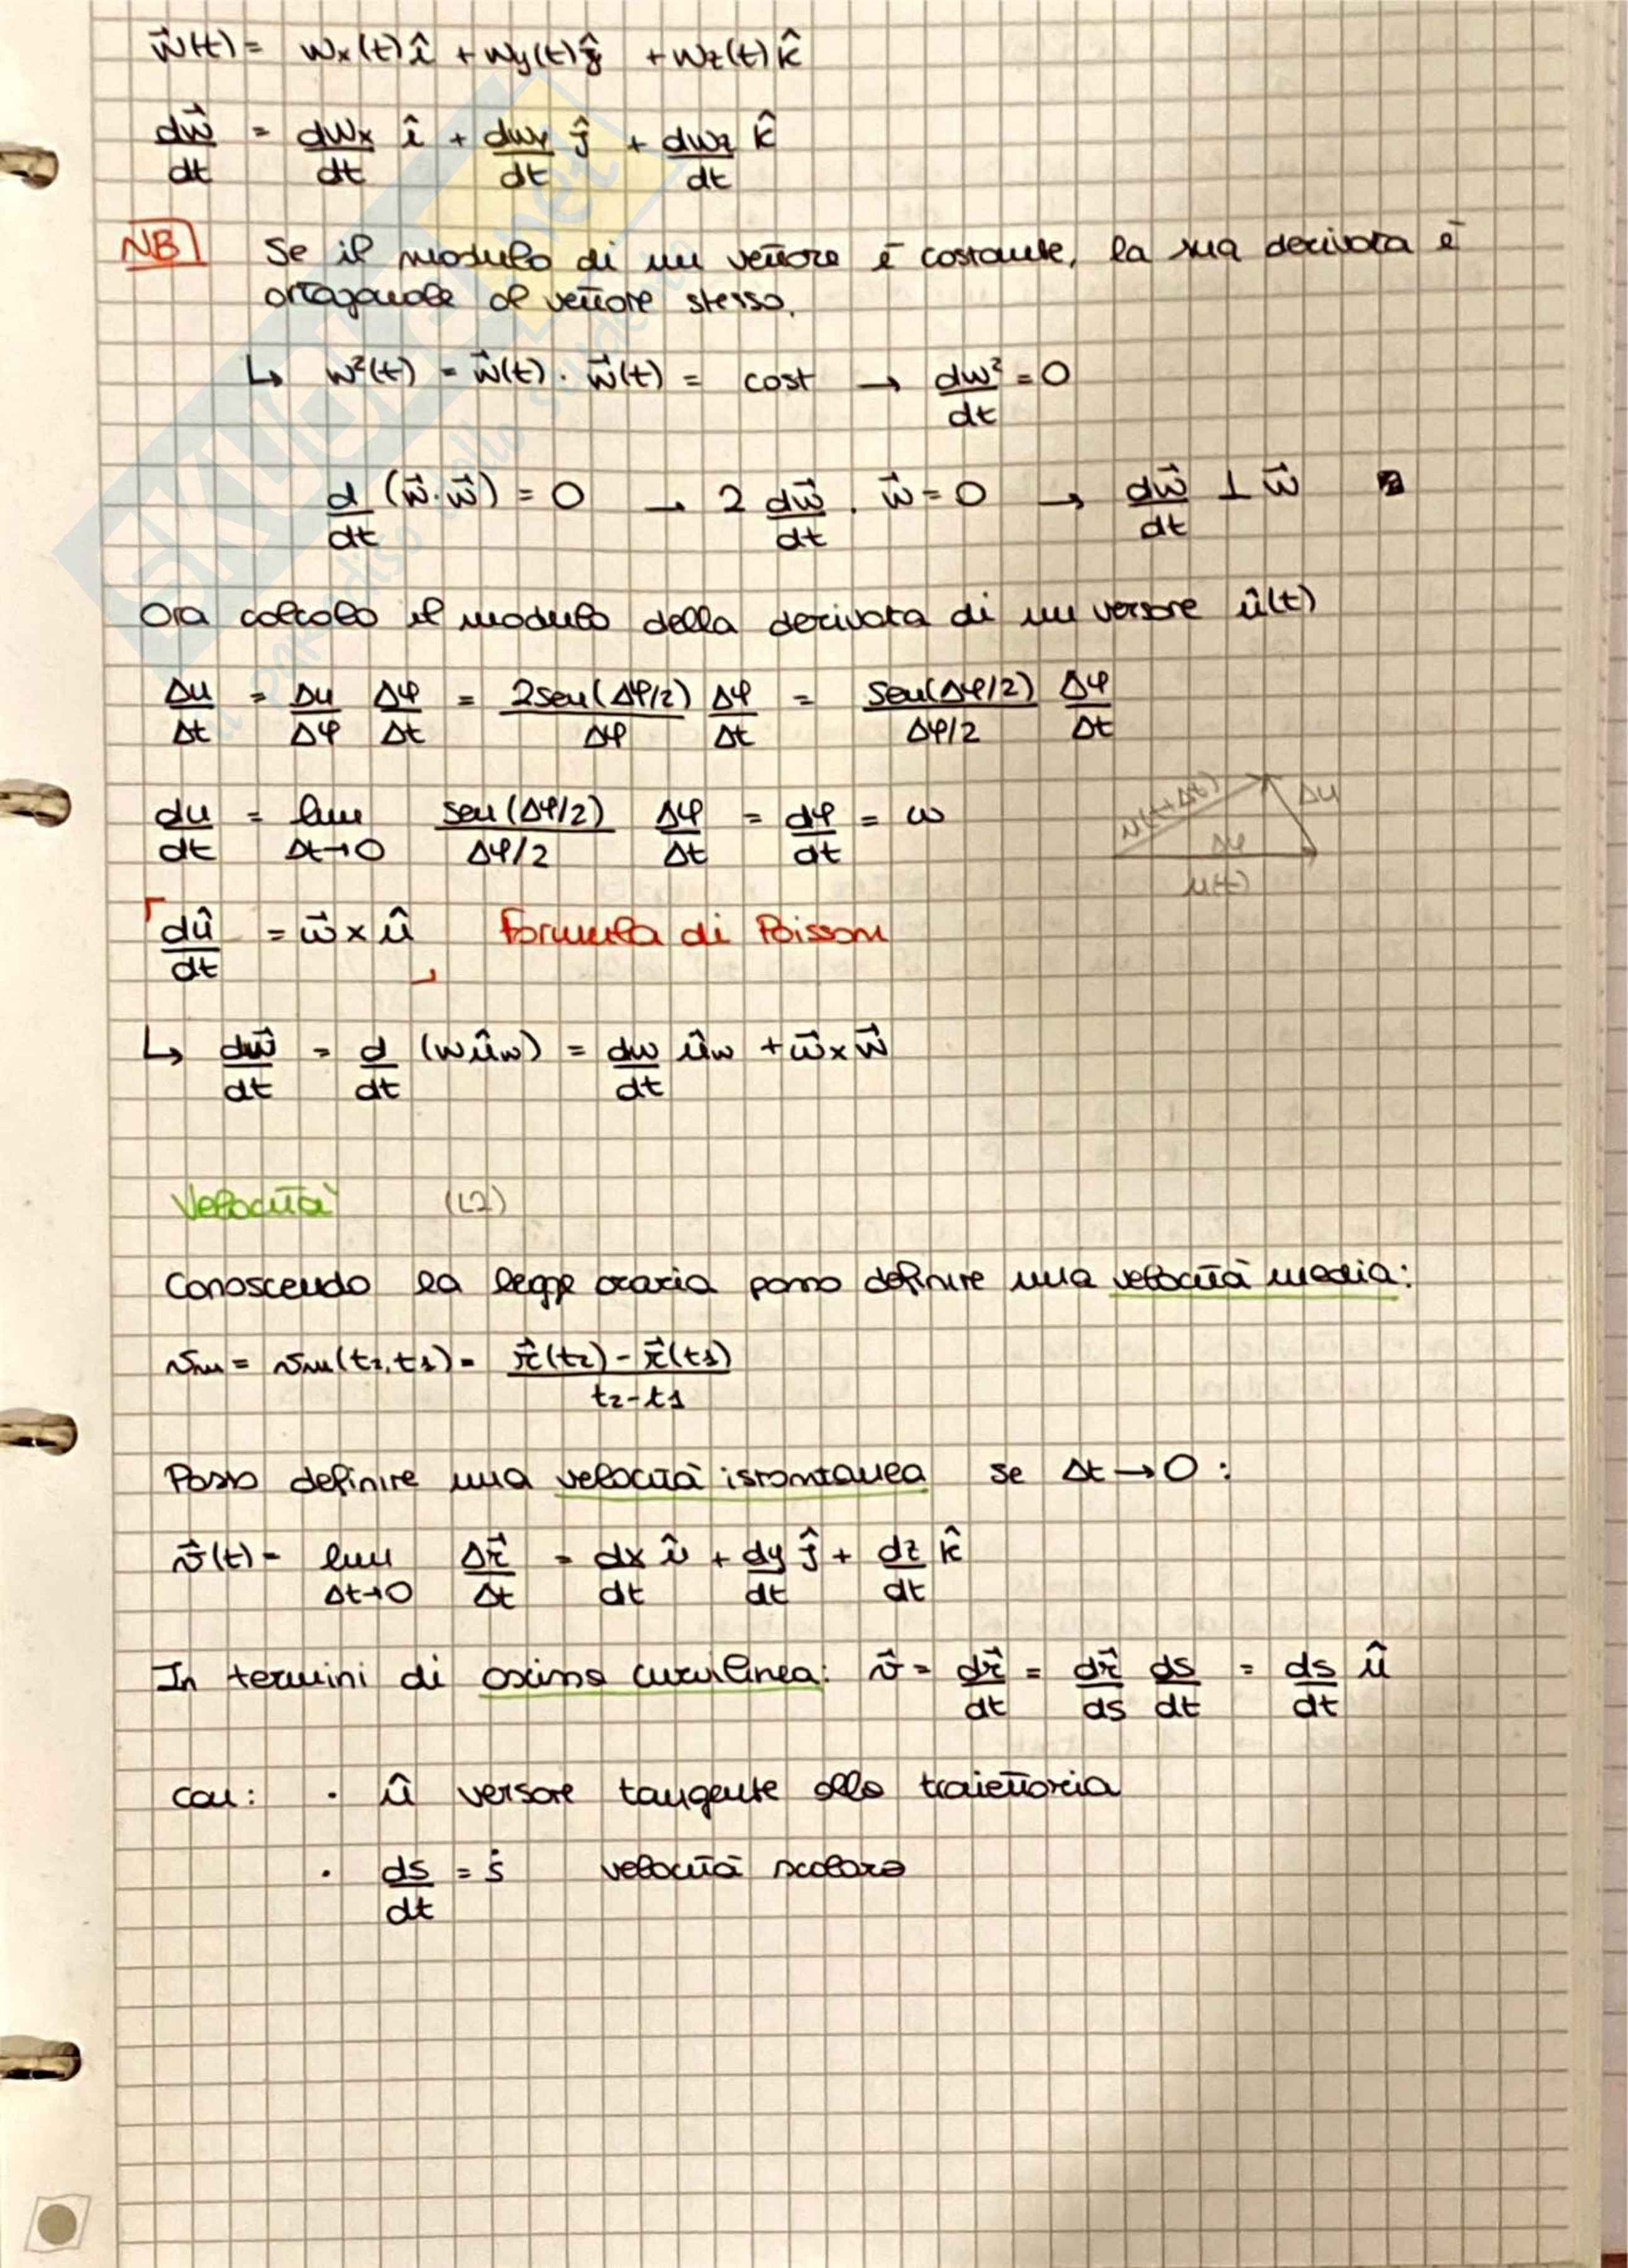 w⃗(t) = wx(t) î + wy(t) ĵ + wz(t) k̂
dw⃗/dt = dwx/dt î + dwy/dt ĵ + dwz/dt k̂
NB Se il modulo di un vettore è costante, la sua derivata è
ortogonale al vettore stesso.
↳ w²(t) = w⃗(t) · w⃗(t) = cost → dw²/dt = 0
d/dt (w⃗·w⃗) = 0 → 2 dw⃗/dt · w⃗ = 0 → dw⃗/dt ⊥ w⃗
Ora calcolo il modulo della derivata di un versore û(t)
Δu/Δt = Δu/Δφ Δφ/Δt = 2sen(Δφ/2)/Δφ Δφ/Δt = sen(Δφ/2)/Δφ/2 Δφ/Δt
du/dt = lim Δt→0 sen(Δφ/2)/Δφ/2 Δφ/Δt = dφ/dt = ω
u(t+Δt) Δu
Δφ
u(t)
dû/dt = ω⃗ × û Formula di Poisson
↳ dw⃗/dt = d/dt (w ûw) = dw/dt ûw + ω⃗ × w⃗
Velocità (L2)
Conoscendo la legge oraria posso definire una velocità media:
vm = vm(t2,t1) = r⃗(t2) - r⃗(t1) / t2-t1
Posso definire una velocità istantanea se Δt → 0 :
v⃗(t) = lim Δt→0 Δr⃗/Δt = dx/dt î + dy/dt ĵ + dz/dt k̂
In termini di ascissa curvilinea: v⃗ = dr⃗/dt = dr⃗/ds ds/dt = ds/dt û
con: · û versore tangente alla traiettoria
· ds/dt = ṡ velocità scalare
SKUOLA.net
il paradiso dello studente